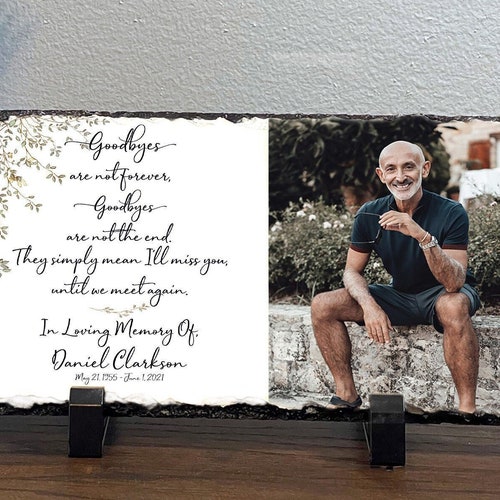 Goodbyes
are not forever,
Goodbyes
are not the end.
They simply mean I'll miss you,
until we meet again.
In Loving Memory Of,
Daniel Clarkson
May 21, 1955 - June 1, 2021